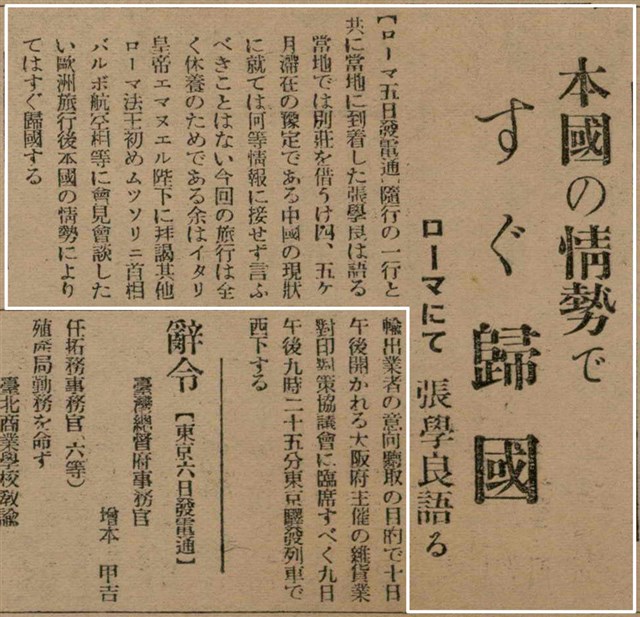 本國の情勢で
すぐ歸國
ローマにて 張學良語る
【ローマ五日發電通】隨行の一行と
共に當地に到着した張學良は語る
當地では別莊を借うけ四、五ケ
月滯在の豫定である中國の現狀
に就ては何等情報に接せず言ふ
べきことはない今回の旅行は全
く休養のためである余はイタリ
皇帝エマヌエル陛下に拝謁其他
ローマ法王初めムツソリニ首相
バルボ航空相等に會見會談した
い歐洲旅行後本國の情勢により
てはすぐ歸國する
輸出業者の意向聽取の目的で十日
午後開かれる大阪府主催の雜貨業
對印對策協議會に臨席すべく九日
午後九時二十五分東京驛發列車で
西下する
辭令【東京六日發電通】
臺灣總督府事務官
增本 甲吉
任拓務事務官（六等）
殖産局勤務を命ず
臺北商業學校敎諭